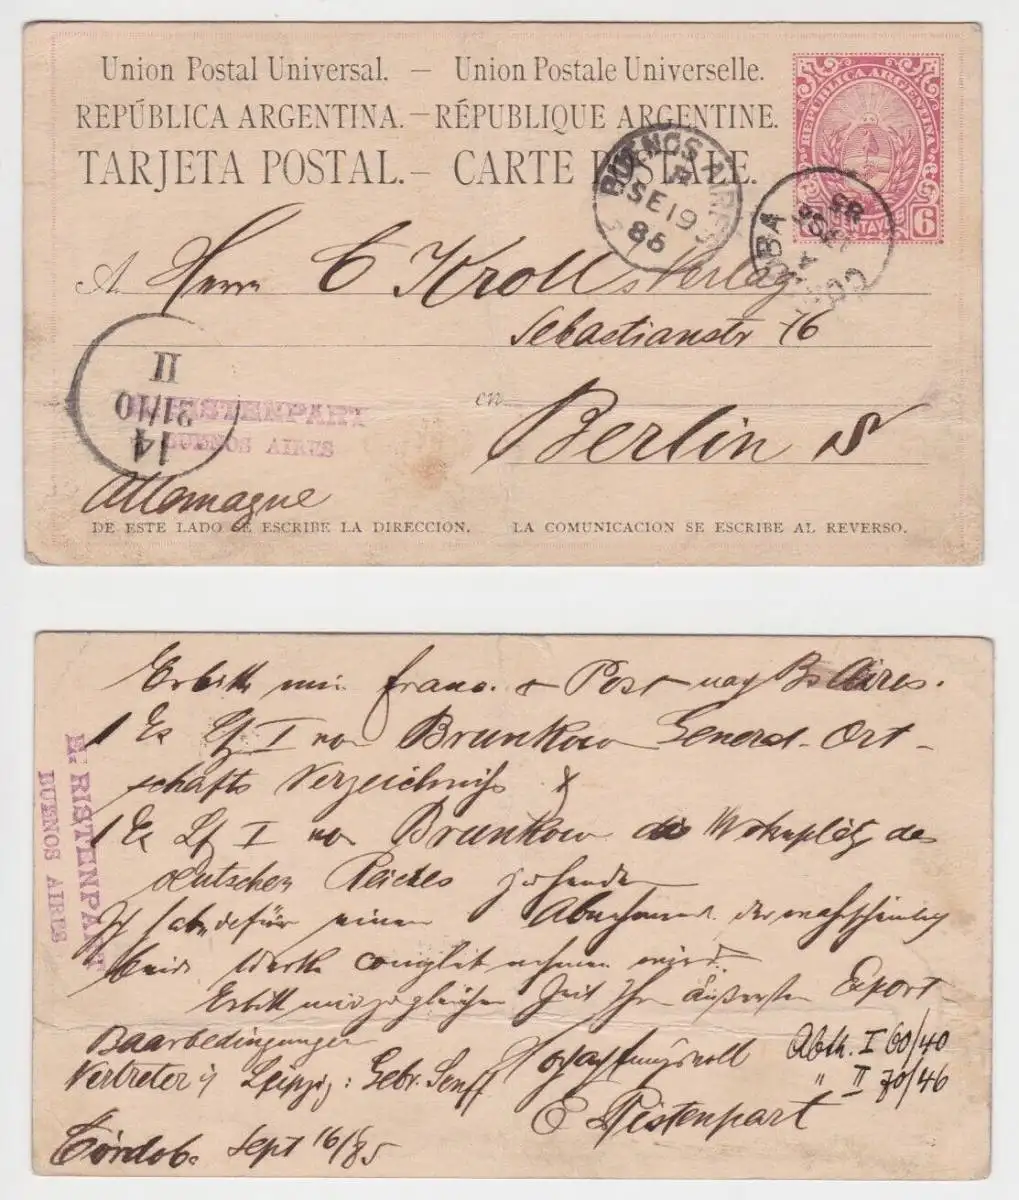 Union Postal Universal. — Union Postale Universelle.
REPÚBLICA ARGENTINA. — RÉPUBLIQUE ARGENTINE.
TARJETA POSTAL. — CARTE POSTALE.
REPUBLICA ARGENTINA
6 CENTAVOS
BUENOS AIRES
SE 19
CORDOBA
A Herrn C Kroll's Verlag
Sebastianstr 76
en
Berlin S
II
21/10
14
RISTENPART
BUENOS AIRES
Allemagne
DE ESTE LADO SE ESCRIBE LA DIRECCION. LA COMUNICACION SE ESCRIBE AL REVERSO.
Erbitte mir franco. Post Bs Aires.
1 Ex Lf I von Brunkow General-Ort-
schafts Verzeichniß &
1 Ex Lf I von Brunkow die Wohnplätze des
deutschen Reiches
für einen Abnehmer der wahrscheinlich
beide Werke complet nehmen wird.
Erbitte mir zu gleicher Zeit Ihre äußersten Export
Baarbedingungen
Hochachtungsvoll
Abth. I 60/40
" II 70/46
Vertreter in Leipzig: Gebr. Senff
E Ristenpart
Córdoba Sept 16/85
E. RISTENPART
BUENOS AIRES